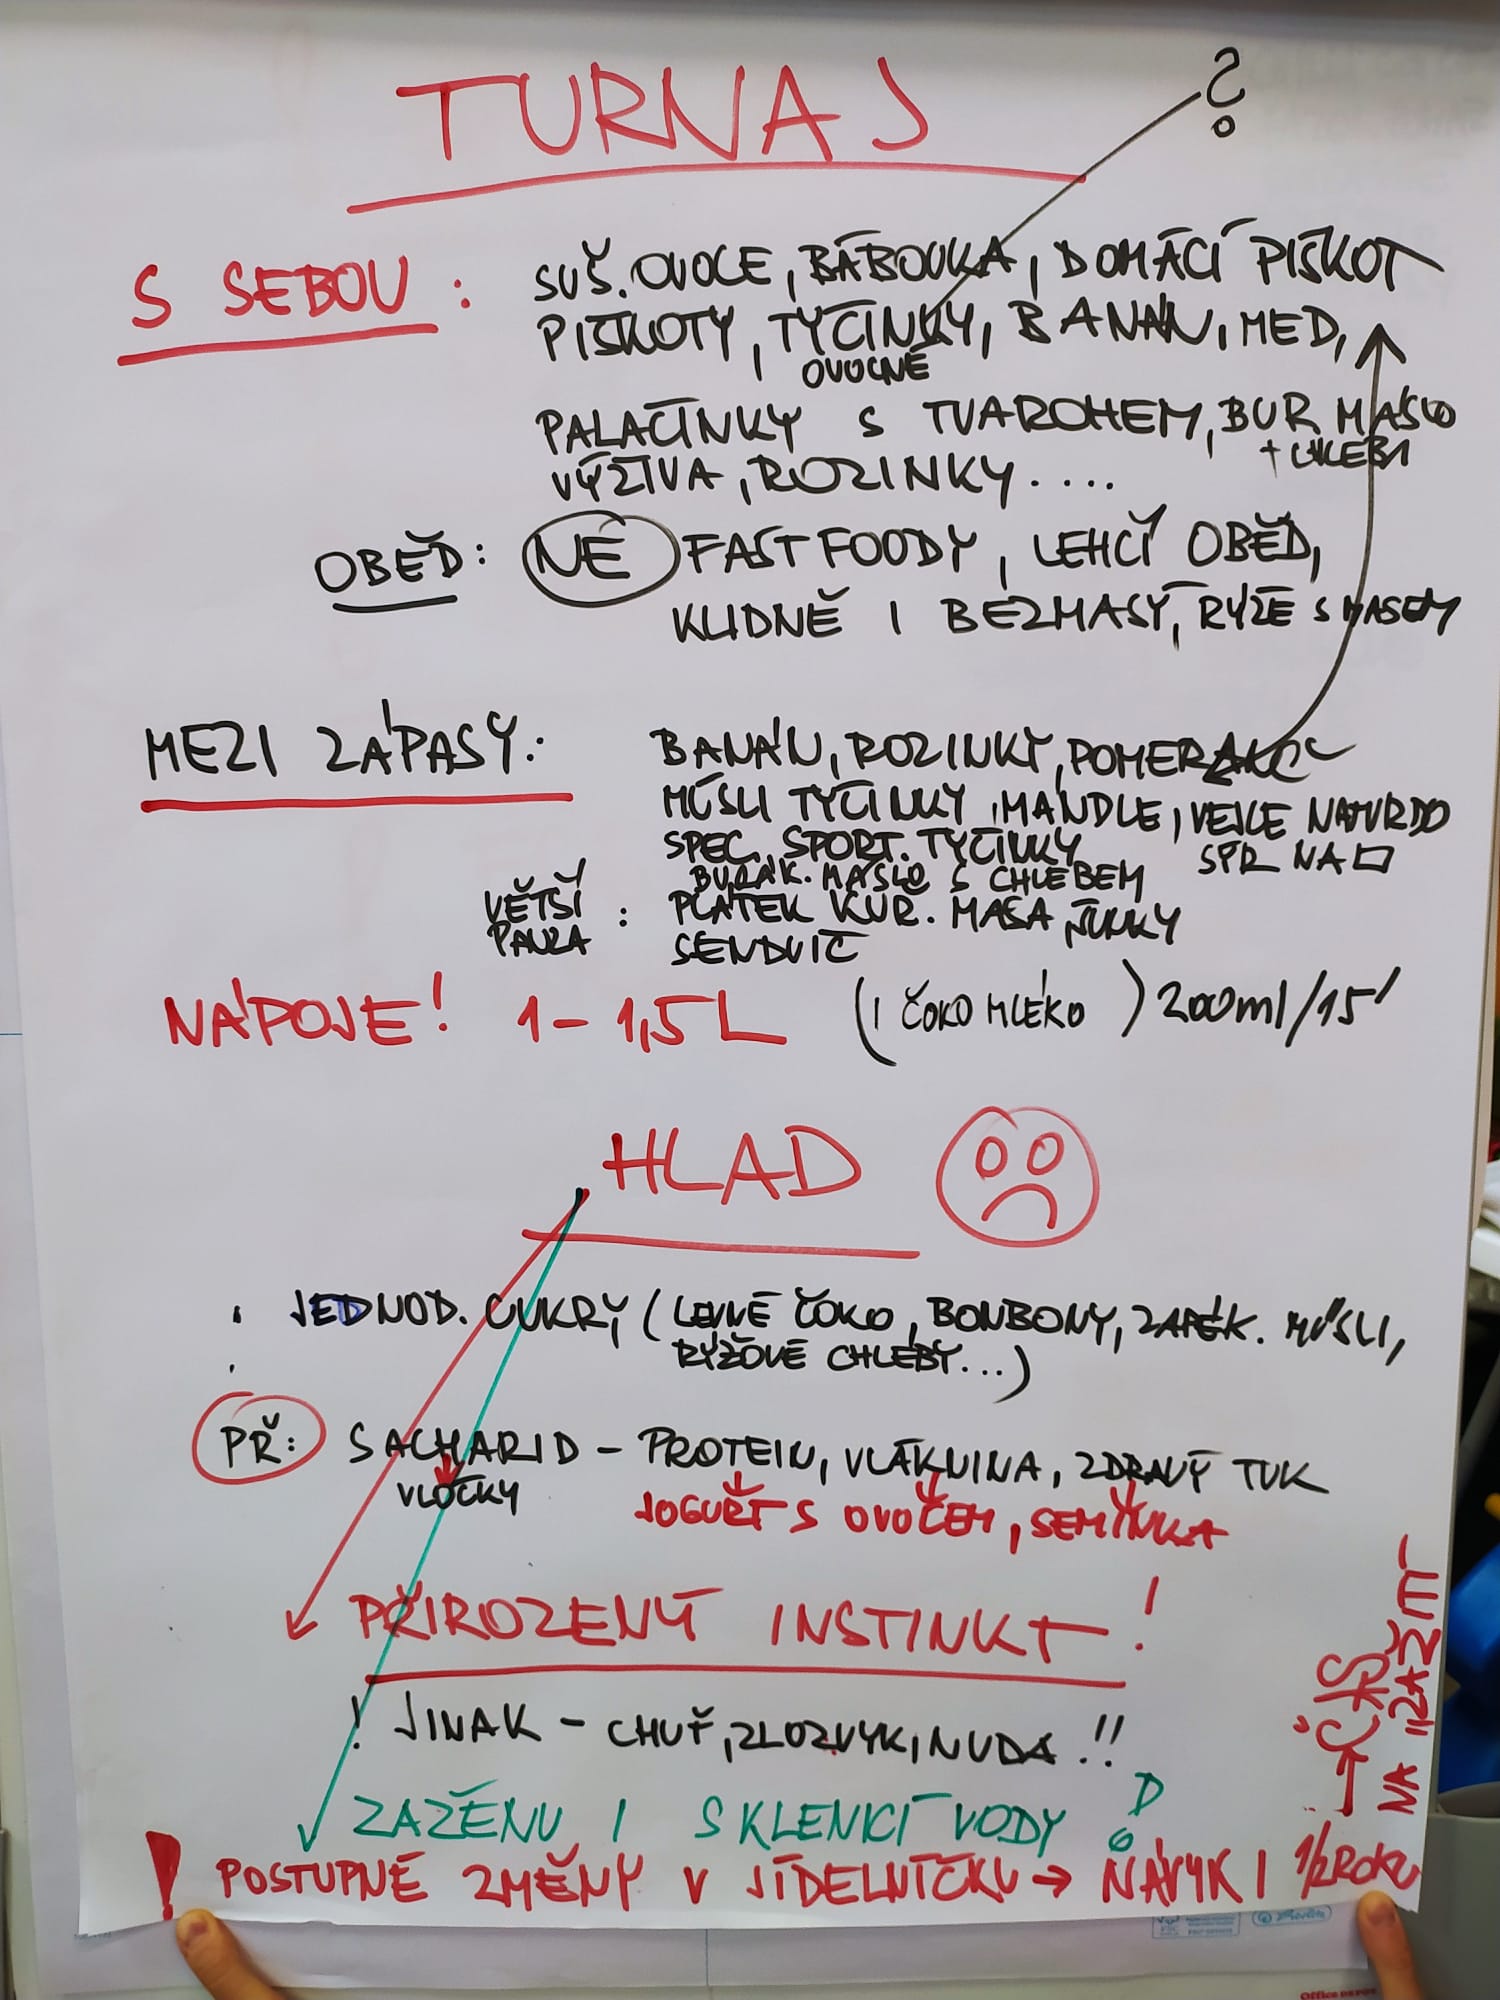 TURNAJ
?
S SEBOU :
SUŠ. OVOCE, BÁBOVKA, DOMÁCÍ PIŠKOT
PIŠKOTY, TYČINKY, BANÁN, MED,
OVOCNÉ
PALAČINKY S TVAROHEM, BUR MÁSLO
+ CHLEBA
VÝŽIVA, ROZINKY ....
OBĚD: NE FAST FOODY, LEHČÍ OBĚD,
KLIDNĚ I BEZMASÝ, RÝŽE S MASEM
MEZI ZÁPASY:
BANÁN, ROZINKY, POMERANČ
MÜSLI TYČINKY, MANDLE, VEJCE NATVRDO
SPEC. SPORT. TYČINKY
SÝR NA
BURÁK. MÁSLO S CHLEBEM
VĚTŠÍ PAUZA : PLÁTEK KUŘ. MASA ŠUNKY
SENDVIČ
NÁPOJE! 1 - 1,5 L (I ČOKO MLÉKO) 200ml/15'
HLAD
• JEDNOD. CUKRY (LEVNÉ ČOKO, BONBONY, ZAPÉK. MÜSLI,
RÝŽOVÉ CHLEBY...)
PŘ: SACHARID - PROTEIN, VLÁKNINA, ZDRAVÝ TUK
VLOČKY
JOGURT S OVOCEM, SEMÍNKA
PŘIROZENÝ INSTINKT!
! JINAK - CHUŤ, ZLOZVYK, NUDA !!
ZAŽENU I SKLENICÍ VODY ?
! POSTUPNÉ ZMĚNY V JÍDELNÍČKU → NÁVYK I 1/2 ROKU
ČAS
NA ZAŽÍT
Office DEPOT